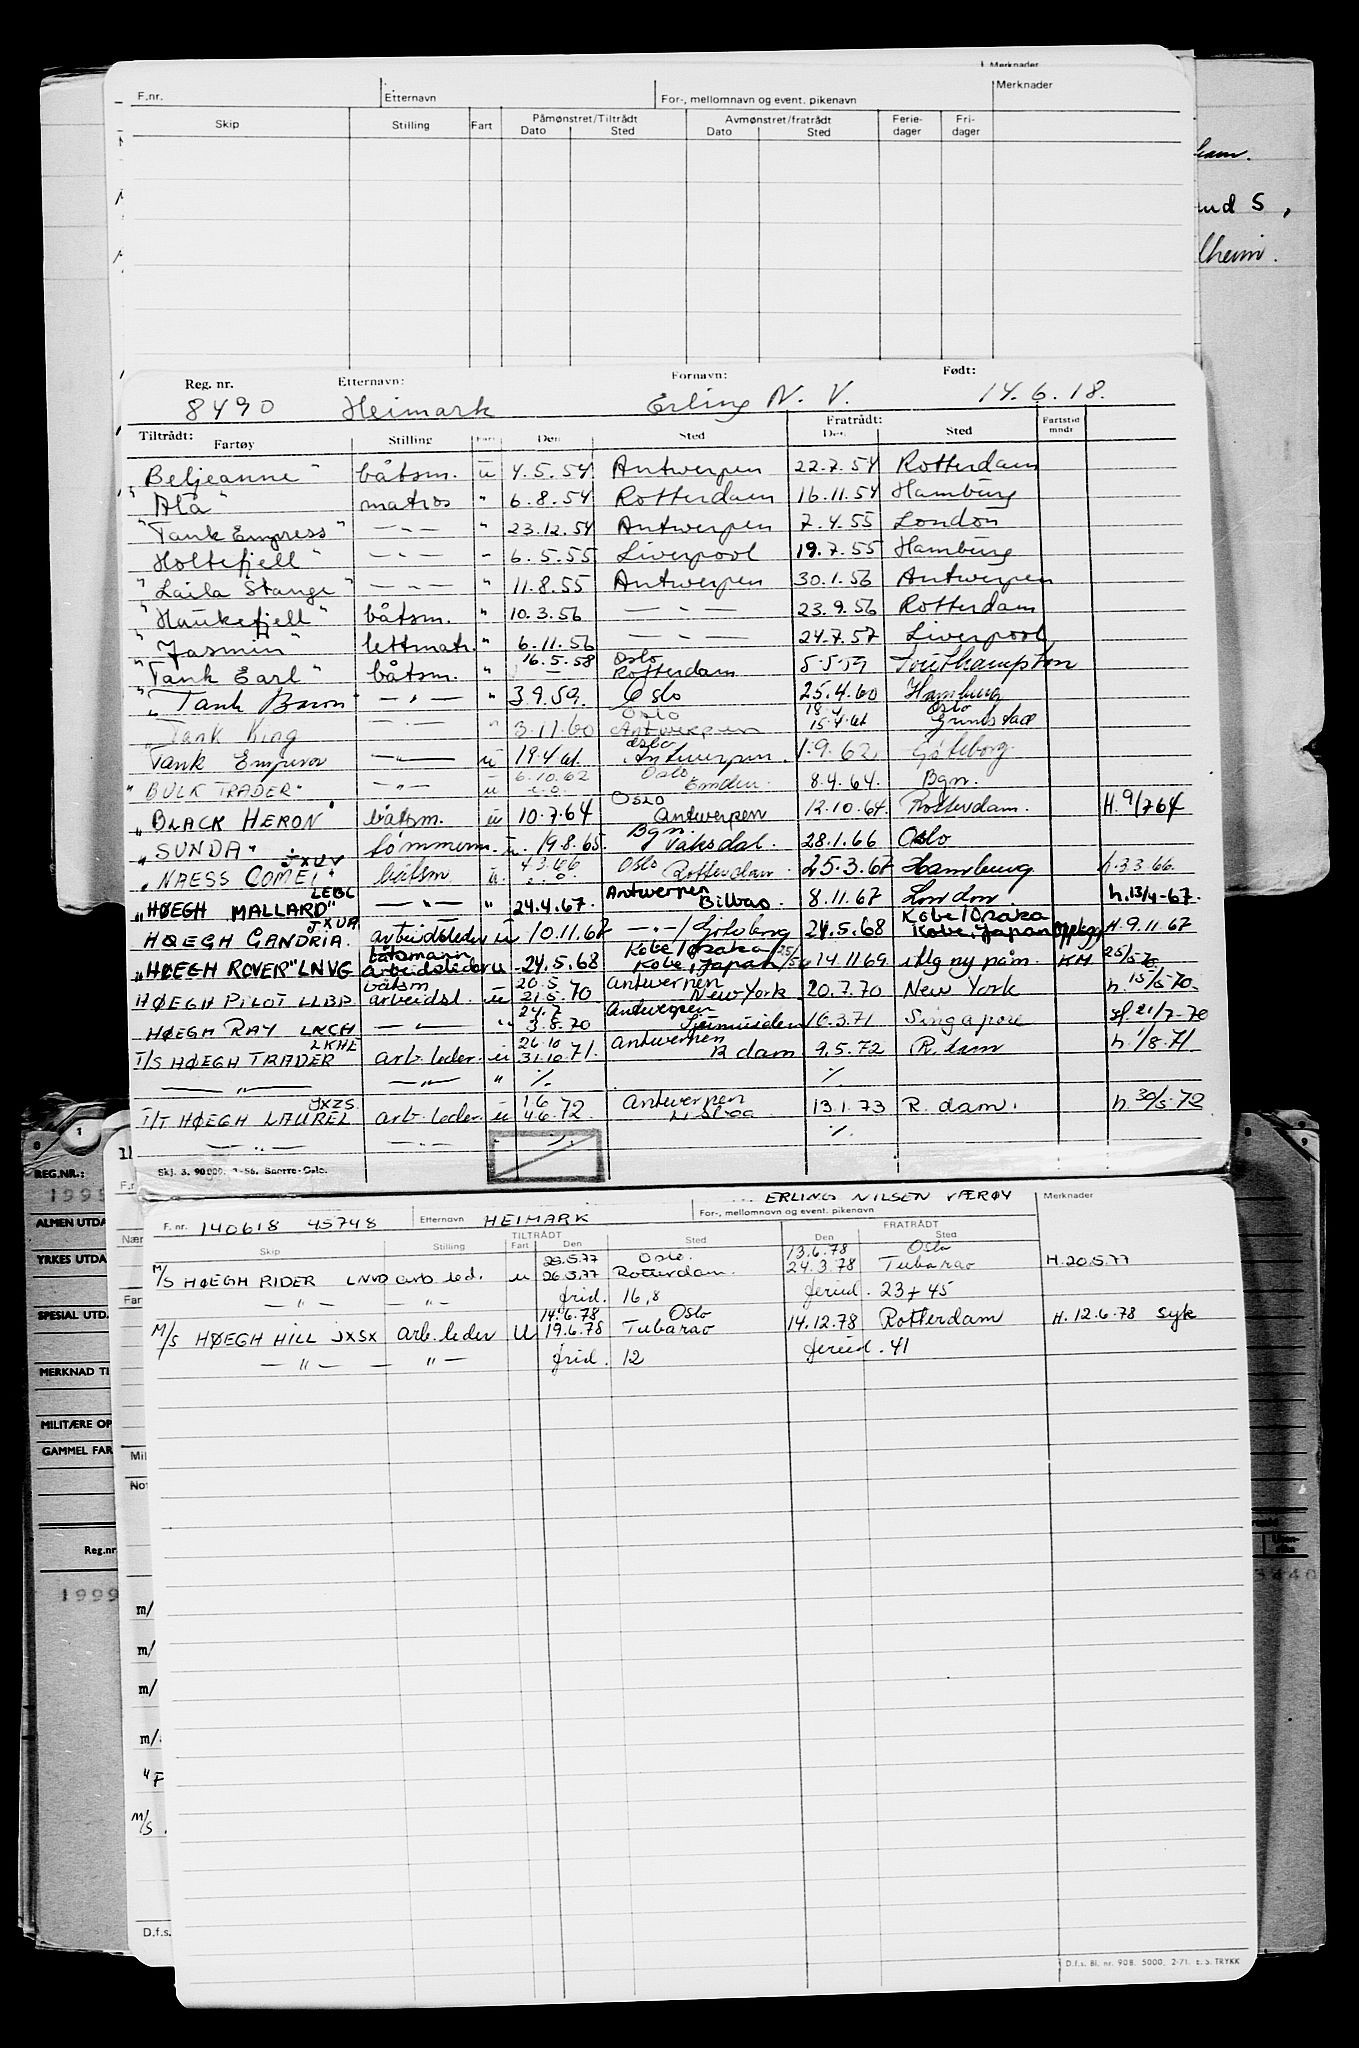 Merknader
F.nr. Etternavn For-, mellomnavn og event. pikenavn Merknader
Skip Stilling Fart Påmønstret/Tiltrådt Avmønstret/fratrådt Ferie-dager Fri-dager
Dato Sted Dato Sted
and S,
lheim.
Reg. nr. Etternavn: Fornavn: Født:
8490 Heimark Erling N. V. 14.6.18.
Tiltrådt: Fratrådt: Fartstid mndr
Fartøy Stilling Fart Den Sted Den Sted
"Beljeanne" båtsm. u 4.5.54 Antwerpen 22.7.54 Rotterdam
"Ala" matros " 6.8.54 Rotterdam 16.11.54 Hamburg
"Tank Empress" — " — " 23.12.54 Antwerpen 7.4.55 London
Holtefjell" — " — " 6.5.55 Liverpool 19.7.55 Hamburg
"Laila Stange" — " — " 11.8.55 Antwerpen 30.1.56 Antwerpen
"Haukefjell" båtsm. " 10.3.56 — " — 23.9.56 Rotterdam
"Jasmin" lettmatr. " 6.11.56 — " — 24.7.57 Liverpool
"Tank Earl" båtsm. " 16.5.58 Oslo Rotterdam 5.5.59 Southampton
"Tank Baron" — " — " 3.9.59 Oslo 25.4.60 Hamburg
"Tank King — " — " 3.11.60 Oslo Antwerpen 18.4 15.4.61 Oslo
Tank Emperor — " — u 19.4.61. Oslo Antwerpen. 1.9.62 Göteborg.
"BULK TRADER" — " — u 6.10.62 Oslo Emden. 8.4.64. Bgn.
"BLACK HERON" båtsm. u 10.7.64 OSLO Antwerpen 12.10.64. Rotterdam. H. 9/7 64
"SUNDA" tømmerm. u. 19.8.65. Bgn. Vaksdal. 28.1.66 Oslo
"NAESS COMET" JXUV båtsm u. 4.3.66 Oslo Rotterdam. 25.3.67 Hamburg. h. 3.3.66.
"HØEGH MALLARD" LEBL — " — " 24.4.67. Antwerpen Bilbao. 8.11.67 London. h. 13/4-67.
HØEGH GANDRIA. JXUA arbeidsleder u 10.11.67 — " — / Göteborg 24.5.68 Kobe/Osaka Kobe, Japan H. 9.11 67
"HØEGH ROVER" LNVG båtsmann arbeidsleder u -24.5.68 Kobe/Osaka Kobe, Japan 14.11 69 KH
HØEGH PILOT LLBP båtsm arbeidsl. u 20.5 21.5.70 Antwerpen New York 20.7.70 New York h 15/5-70.
HØEGH RAY LKCH — " — " 24.7 3.8.70 Antwerpen 16.3.71 Singapore 21/7-70
T/S HØEGH TRADER LKHL arb. leder. u 26.10 31.10.71. Antwerpen R dam 9.5.72 R. dam h. 1/8.71
— " — — " — " ./. ./.
T/T HØEGH LAUREL JXZS arb. leder. u 1.6 4.6.72 Antwerpen 13.1.73 R. dam. h 30/5-72
— " — — " — ./. ./.
Skj. 3. 90 000. 3-56. Snorre-Oslo.
REG.NR.:
ALMEN UTDA
YRKES UTDA
SPECIAL UTD.
MERKNAD TI
MILITÆRE OP
GAMMEL FAR
Reg.nr
1999
ERLING NILSEN VÆRØY Merknader
F. nr. 140618 45748 Etternavn HEIMARK For-, mellomnavn og event. pikenavn
TILTRÅDT FRATRÅDT
Skip Stilling Fart Den Sted Den Sted
M/S HØEGH RIDER LNVO arb. led. u 23.5.77 26.5.77 Oslo. Rotterdam. 13.6.78 24.3.78 Oslo Tubarao H. 20.5.77
— " — — " — frid. 16,8 feried. 23 + 45
M/S HØEGH HILL JXSX arb. leder U 14.6.78 19.6.78 Oslo Tubarao 14.12.78 Rotterdam H. 12.6.78 syk
— " — — " — frid. 12 feried. 41
m/
m/
m/
m/
"F
M/S
D.f.s.
D.f.s. Bl. nr. 908. 5000. 2-71. E. S. TRYKK